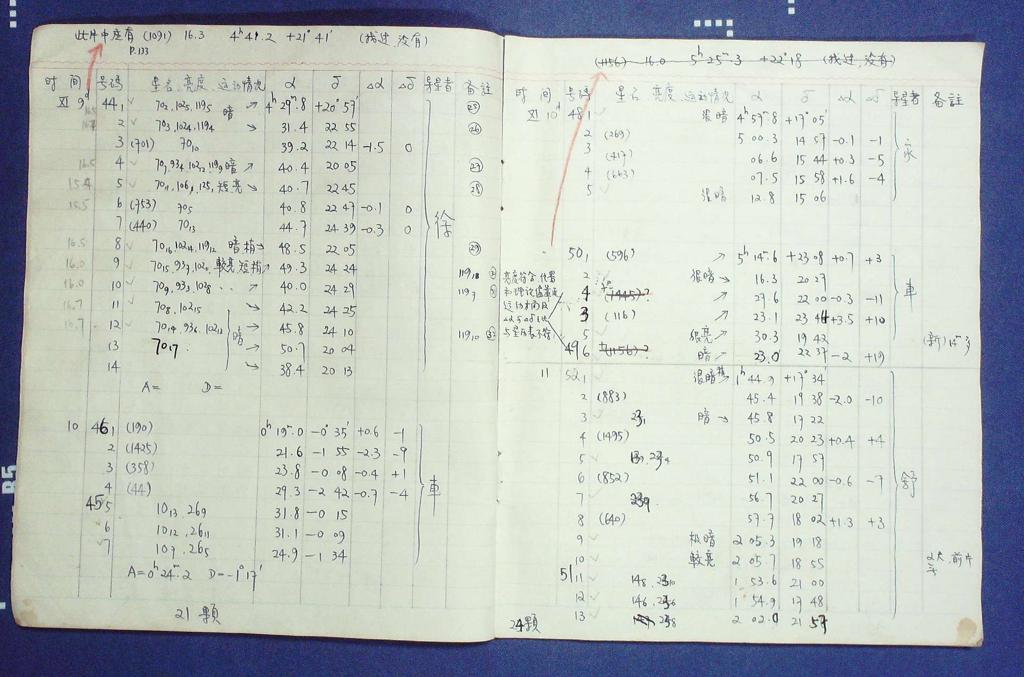 此片中应有 (1091) 16.3 4ʰ41.2 +21°41′ (找过,没有)
P.133
时间 号码 星名,亮度,运动情况 α δ Δα Δδ 寻星者 备註
XI 9ᵈ 44₁ 70₂,102₅,119₅ 暗 4ʰ29ᵐ.8 +20°57′ ㉕
2 70₃,102₄,119₄ ↘ 31.4 22 55 ㉖
3 (701) 70₁₀ 39.2 22 14 -1.5 0
16.5 4 70₇,93₄,102₂₂,119₉ 暗 ↗ 40.4 20 05 ㉗
15.4 5 短亮 ↘ 40.7 22 45 ㉘
15.5 6 (753) 70₅ 40.8 22 47 -0.1 0
7 (440) 70₁₃ 44.7 24 39 -0.3 0
徐
16.5 8 70₁₆,102₁₄,119₁₂ 暗稍→ 48.5 22 05 ㉙
16.0 9 較亮短稍 49.3 24 24 119₁₈
16.0 10 70₉,93₃,102₈ 〃 ↗ 40.0 24 29 119₇
16.7 11 70₈,102₁₅ → 42.2 24 25
16.7 12 70₁₄ 暗 45.8 24 10 119₁₀
13 70₁₇ ↘ 50.7 20 04
14 ↘ 38.4 20 13
A= D=
10 46₁ (190) 0ʰ19ᵐ.0 -0°35′ +0.6 -1
2 (1425) 21.6 -1 55 -2.3 -9
3 (358) 23.8 -0 08 -0.4 +1
4 (44) 29.3 -2 42 -0.7 -4
車
45₅ 10₁₃,26₉ 31.8 -0 15
6 10₁₂,26₁₁ 31.1 -0 09
7 10₇,26₅ 24.9 -1 34
A=0ʰ24ᵐ.2 D=-1°17′
21顆
(1156) 16.0 5ʰ25ᵐ.3 +22°18 (找过,没有)
时间 号码 星名 亮度,运动情况 α δ Δα Δδ 寻星者 备註
XI 10ᵈ 48₁ 很暗 4ʰ57ᵐ.8 +17°05′
2 (269) 5 00.3 14 57 -0.1 -1
3 (417) 06.6 15 44 +0.3 -5
4 (663) 07.5 15 58 +1.6 -4
5 很暗 12.8 15 06
50₁ (596) ↗ 5ʰ14ᵐ.6 +23 08 +0.7 +3
2 很暗→ 16.3 20 27
4 (1445)? → 29.6 22 00 -0.3 -11
3 (116) ↗ 23.1 23 44 +3.5 +10
車
5 很亮 ↗ 30.3 19 42
49₆ (1156)? 暗 ↗ 23.0 22 37 -2 +19
11 52₁ 很暗 1ʰ44ᵐ.9 +17°34′
2 (883) 45.4 19 38 -2.0 -10
3 23₁ 暗 → 45.8 17 22
4 (1495) 50.5 20 23 +0.4 +4
5 50.9 17 57
6 (852) 51.1 22 00 -0.6 -7
舒
7 23₉ 56.7 20 27
8 (640) 57.7 18 02 +1.3 +3
9 极暗 2 05.3 19 18
10 較亮 2 05.7 18 55
51₁₁ 14₈,23₁₀ 1 53.6 21 00
12 14₆,23₆ 1 54.9 17 48
13 23₈ 2 02.0 21 57
24顆